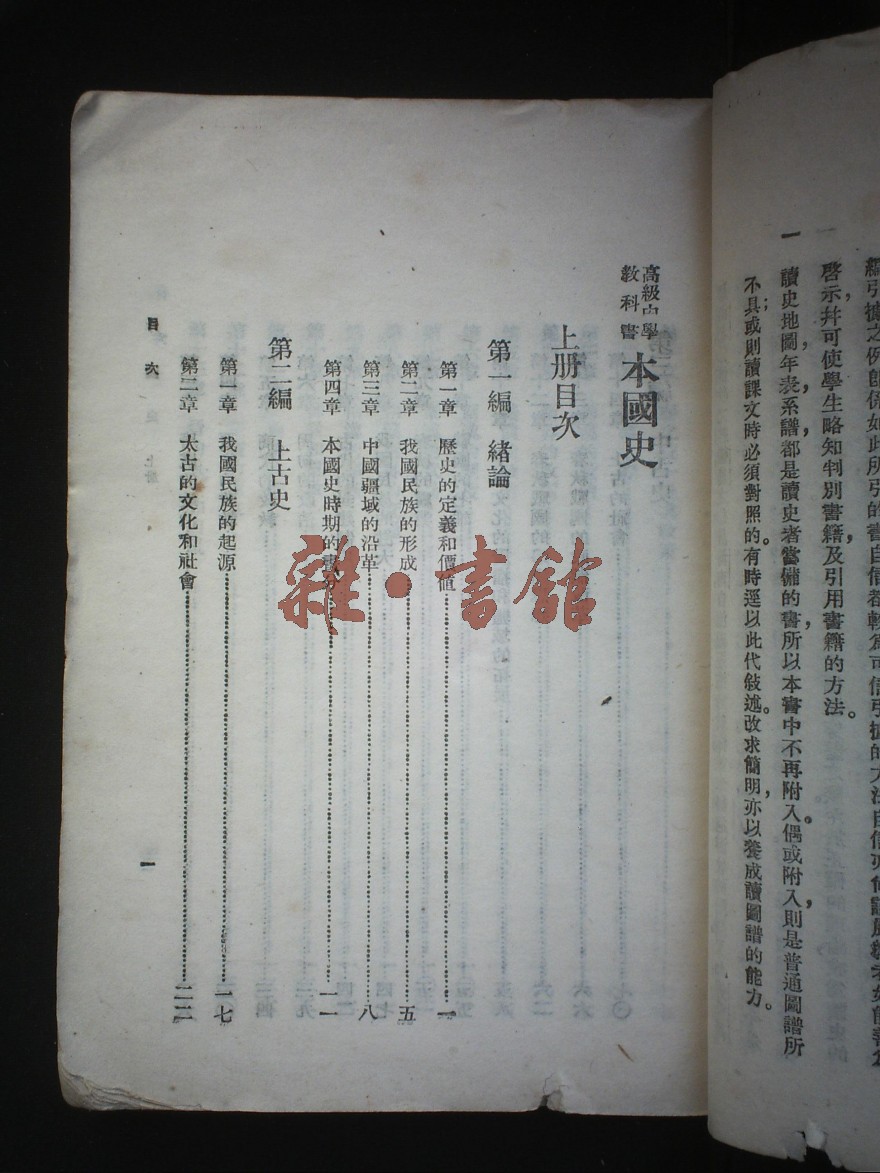 啓示并可使學生略知判別書籍及引用書籍的方法。
一
讀史地圖年表系譜，都是讀史者當備的書，所以本書中不再附入。偶或附入，則是普通圖譜所
不具；或則讀課文時必須對照的。有時逕以此代敍述。改求簡明，亦以養成讀圖譜的能力。
高級中學
教科書
本國史
上册目次
第一編 緒論
第一章 歷史的定義和價值 一
第二章 我國民族的形成 五
第三章 中國疆域的沿革 八
第四章 本國史時期的畫分 一一
第二編 上古史
第一章 我國民族的起源 一七
第二章 太古的文化和社會 二二
目次
一
雜·書館